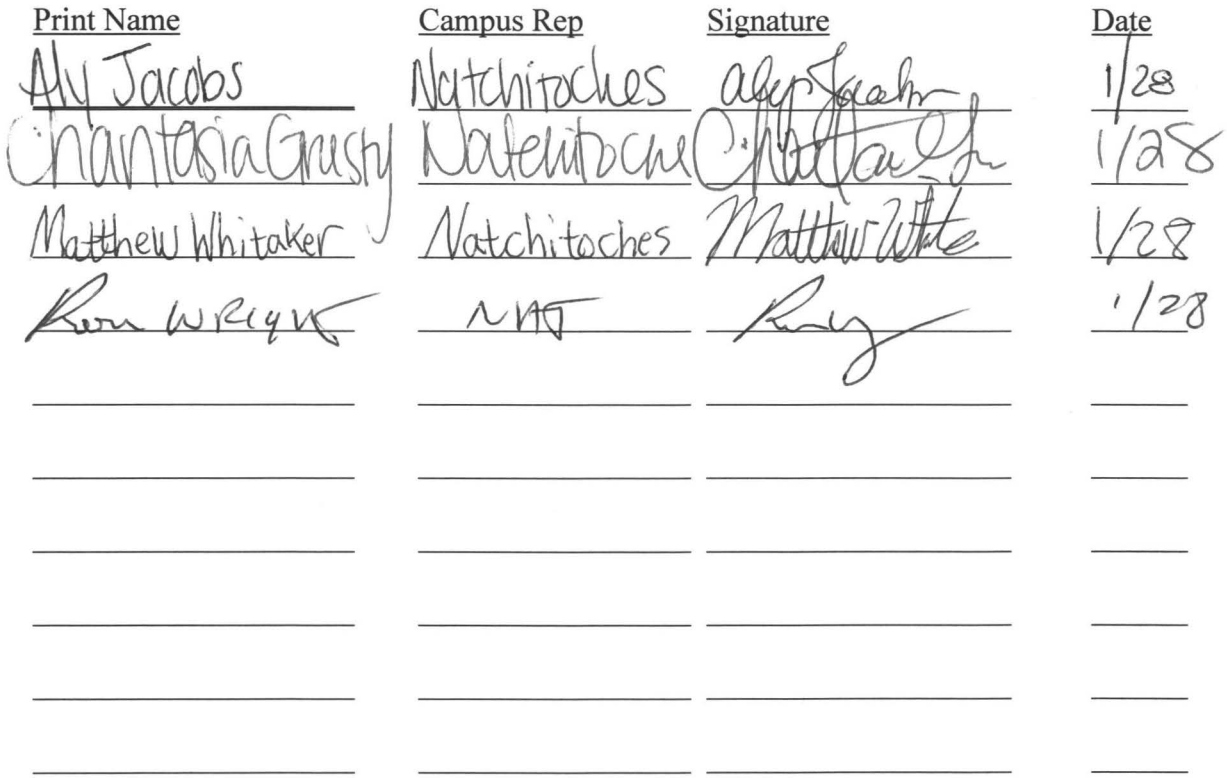 Print Name Campus Rep Signature Date
Aly Jacobs Natchitoches Alyp Jacobs 1/28
Chantasia Grusty Natchitoche 1/28
Matthew Whitaker Natchitoches Matthew White 1/28
Ron Wright NAT 1/28